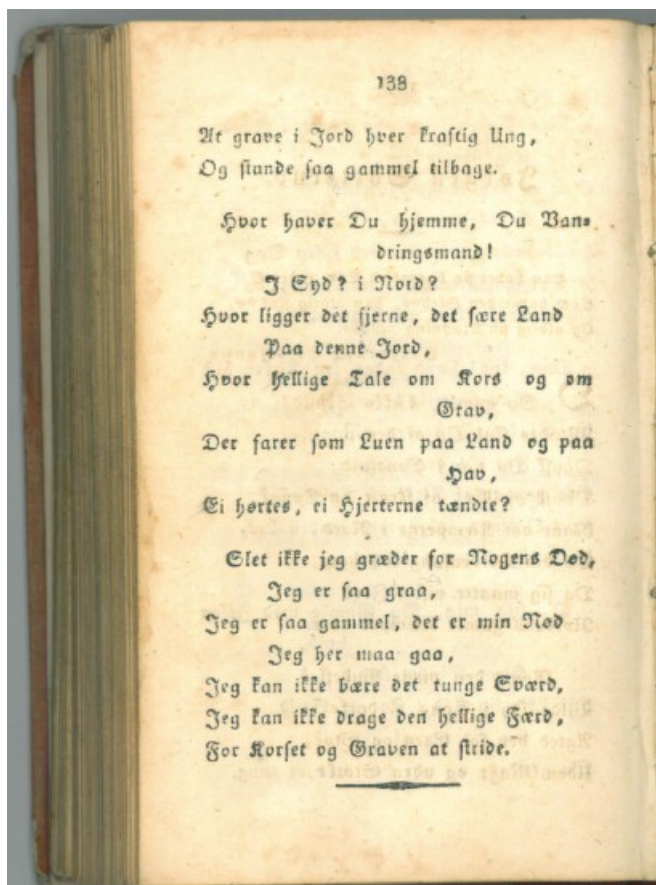 138
At grave i Jord hver kraftig Ung,
Og stande saa gammel tilbage.
Hvor haver Du hjemme, Du Van-
dringsmand!
I Syd? i Nord?
Hvor ligger det fjerne, det sære Land
Paa denne Jord,
Hvor hellige Tale om Kors og om
Grav,
Der farer som Luen paa Land og paa
Hav,
Ei hørtes, ei Hjerterne tændte?
Slet ikke jeg græder for Nogens Død,
Jeg er saa graa,
Jeg er saa gammel, det er min Nød
Jeg her maa gaa,
Jeg kan ikke bære det tunge Sværd,
Jeg kan ikke drage den hellige Færd,
For Korset og Graven at stride.